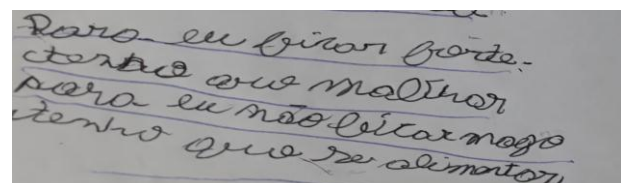 Para eu ficar forte.
tenho que malhar
para eu não ficar mago
tenho que se alimentar,